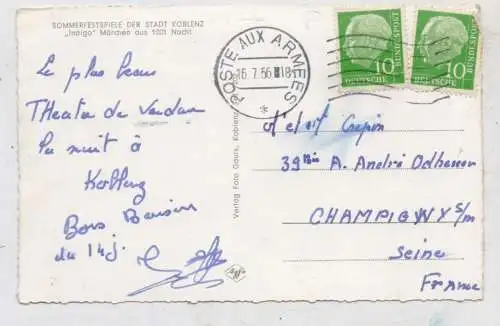 SOMMERFESTSPIELE DER STADT KOBLENZ
„Indigo" Märchen aus 1001 Nacht
Le plus beau
Theatre de Verdure
La nuit à
Koblenz
Bons Baisers
du 14 J.
Verlag Foto Gauls, Koblenz
POSTE AUX ARMEES
16. 7. 56 18
*
10
DEUTSCHE
BUNDESPOST
10
DEUTSCHE
BUNDESPOST
Crepin
39 Bis A. André
CHAMPIGNY S/m
Seine
France